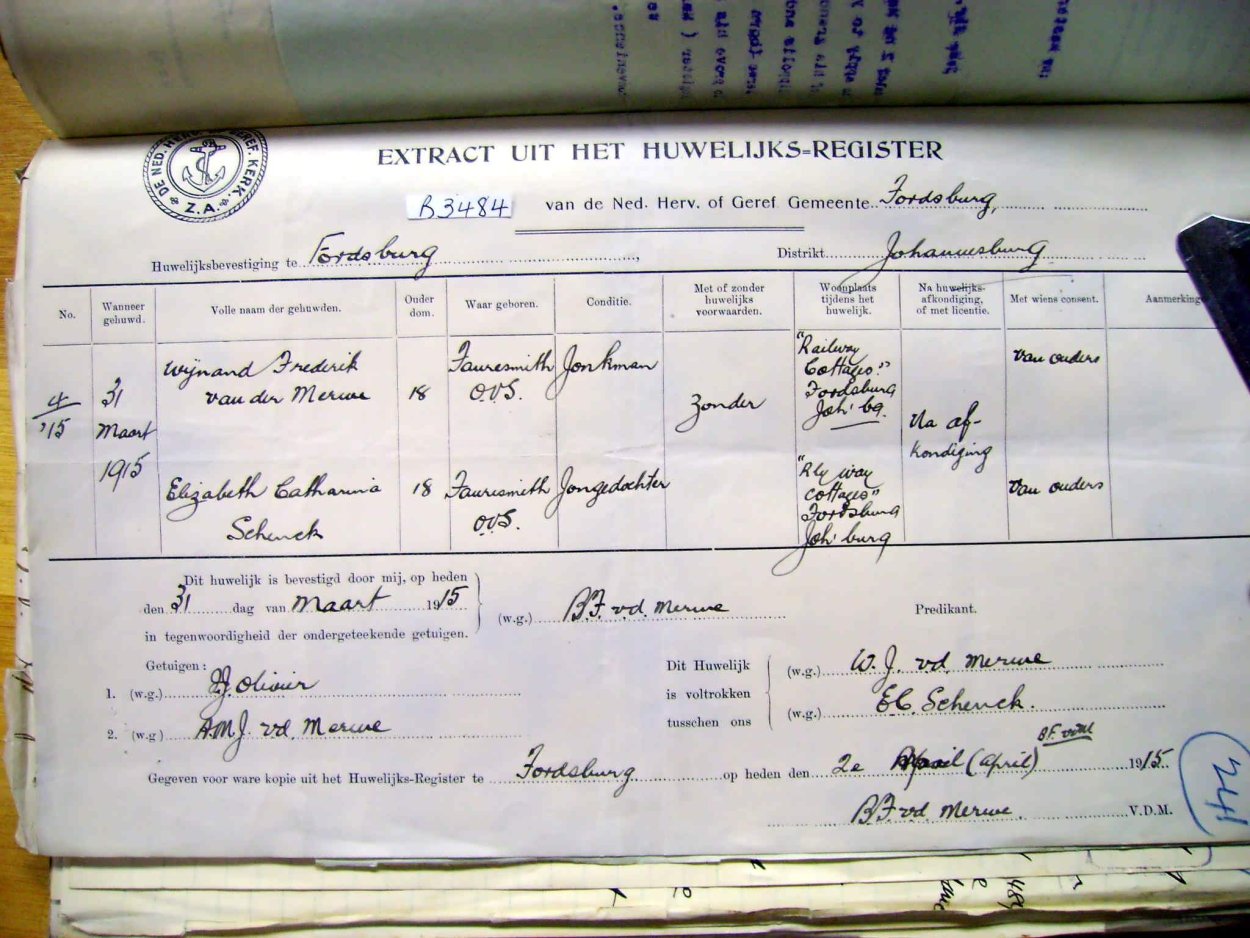 DE NED. HERV. OF GEREF. KERK.
Z.A.
EXTRACT UIT HET HUWELIJKS=REGISTER
B3484
van de Ned. Herv. of Geref Gemeente Fordsburg,
Huwelijksbevestiging te Fordsburg
Distrikt Johannesburg
No.
Wanneer gehuwd.
Volle naam der gehuwden.
Ouder dom.
Waar geboren.
Conditie.
Met of zonder huwelijks voorwaarden.
Woonplaats tijdens het huwelijk.
Na huwelijks-afkondiging, of met licentie.
Met wiens consent.
Aanmerking
4/'15
31
Maart
1915
Wijnand Frederik
van der Merwe
18
Fauresmith
O.V.S.
Jonkman
Zonder
"Railway
Cottages"
Fordsburg
Joh' bg.
Na af-
kondiging
van ouders
Elizabeth Catharina
Schenck
18
Fauresmith
O.V.S.
Jongedochter
"Rly way
Cottages"
Fordsburg
Joh' burg
van ouders
Dit huwelijk is bevestigd door mij, op heden
den 31 dag van Maart 1915
in tegenwoordigheid der ondergeteekende getuigen.
(w.g.) B.F. v.d. Merwe Predikant.
Getuigen:
1. (w.g.) Olivier
2. (w.g) A.M.J. v.d. Merwe
Dit Huwelijk
is voltrokken
tusschen ons
(w.g.) W.J. v.d. Merwe
(w.g.) E.C. Schenck.
B.F. vdM
Gegeven voor ware kopie uit het Huwelijks-Register te Fordsburg op heden den 2e April (April) 1915.
B.F. v.d. Merwe V.D.M.